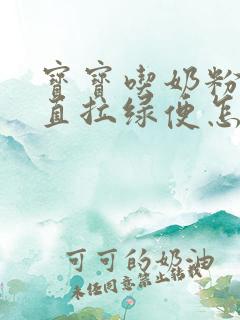 宝宝喫奶粉
直拉绿便怎
可可的奶油
未经同意禁止转载